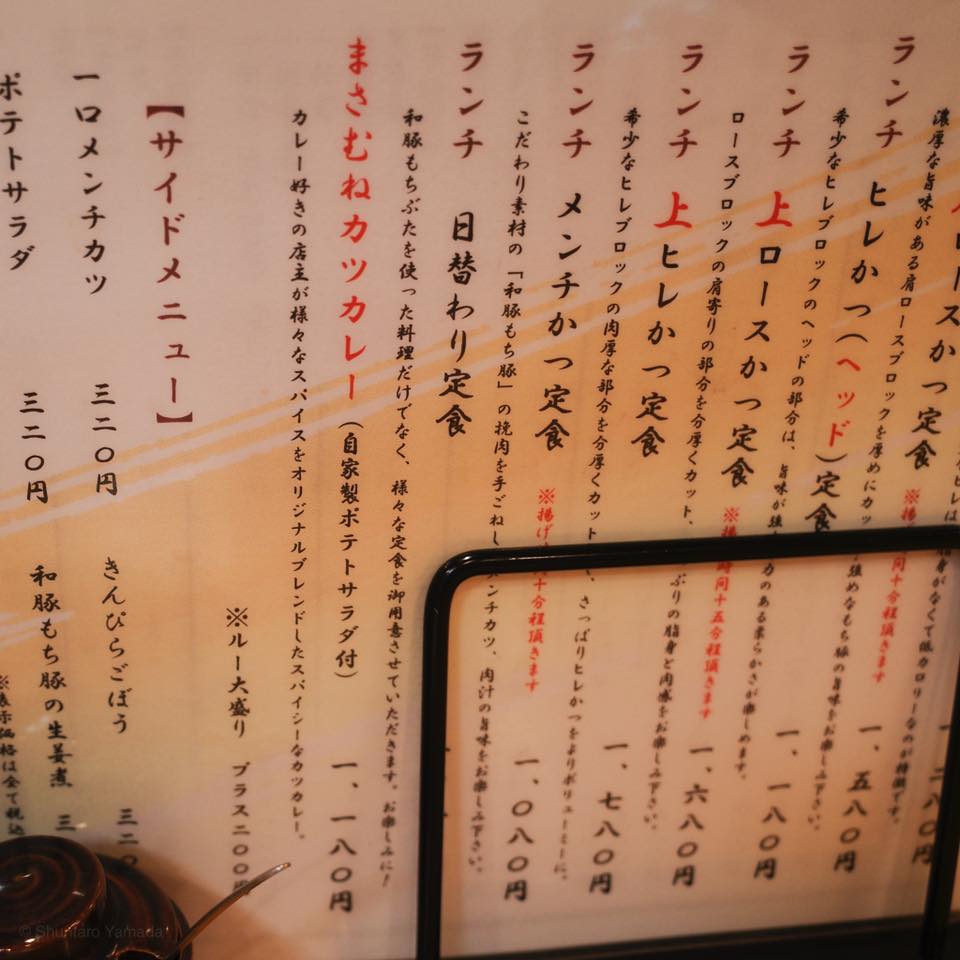 脂身がなくて低カロリーなのが特徴です。
ロースかつ定食 十分程頂きます 一、五八〇円
濃厚な旨味がある肩ロースブロックを厚めにカッ 強めなもち豚の旨味をお楽しみ下さい。
ランチ ヒレかつ(ヘッド)定食 一、一八〇円
希少なヒレブロックのヘッドの部分は、旨味が強 力のある柔らかさが楽しめます。
ランチ 上ロースかつ定食 ※揚 時間十五分程頂きます 一、六八〇円
ロースブロックの肩寄りの部分を分厚くカット、 ぷりの脂身と肉感をお楽しみ下さい。
ランチ 上ヒレかつ定食 一、七八〇円
希少なヒレブロックの肉厚な部分を分厚くカット、さっぱりヒレかつをよりボリューミーに。
ランチ メンチかつ定食 ※揚げ 十分程頂きます 一、〇八〇円
こだわり素材の「和豚もち豚」の挽肉を手ごねし ンチカツ、肉汁の旨味をお楽しみ下さい。
ランチ 日替わり定食
和豚もちぶたを使った料理だけでなく、様々な定食を御用意させていただきます。お楽しみに!
まさむねカツカレー(自家製ポテトサラダ付) 一、一八〇円
カレー好きの店主が様々なスパイスをオリジナルブレンドしたスパイシーなカツカレー。
※ルー大盛り プラス二〇〇円
【サイドメニュー】
一口メンチカツ 三二〇円 きんぴらごぼう 三二〇
ポテトサラダ 三二〇円 和豚もち豚の生姜煮 三
※表示価格は全て税込
© Shuntaro Yamada